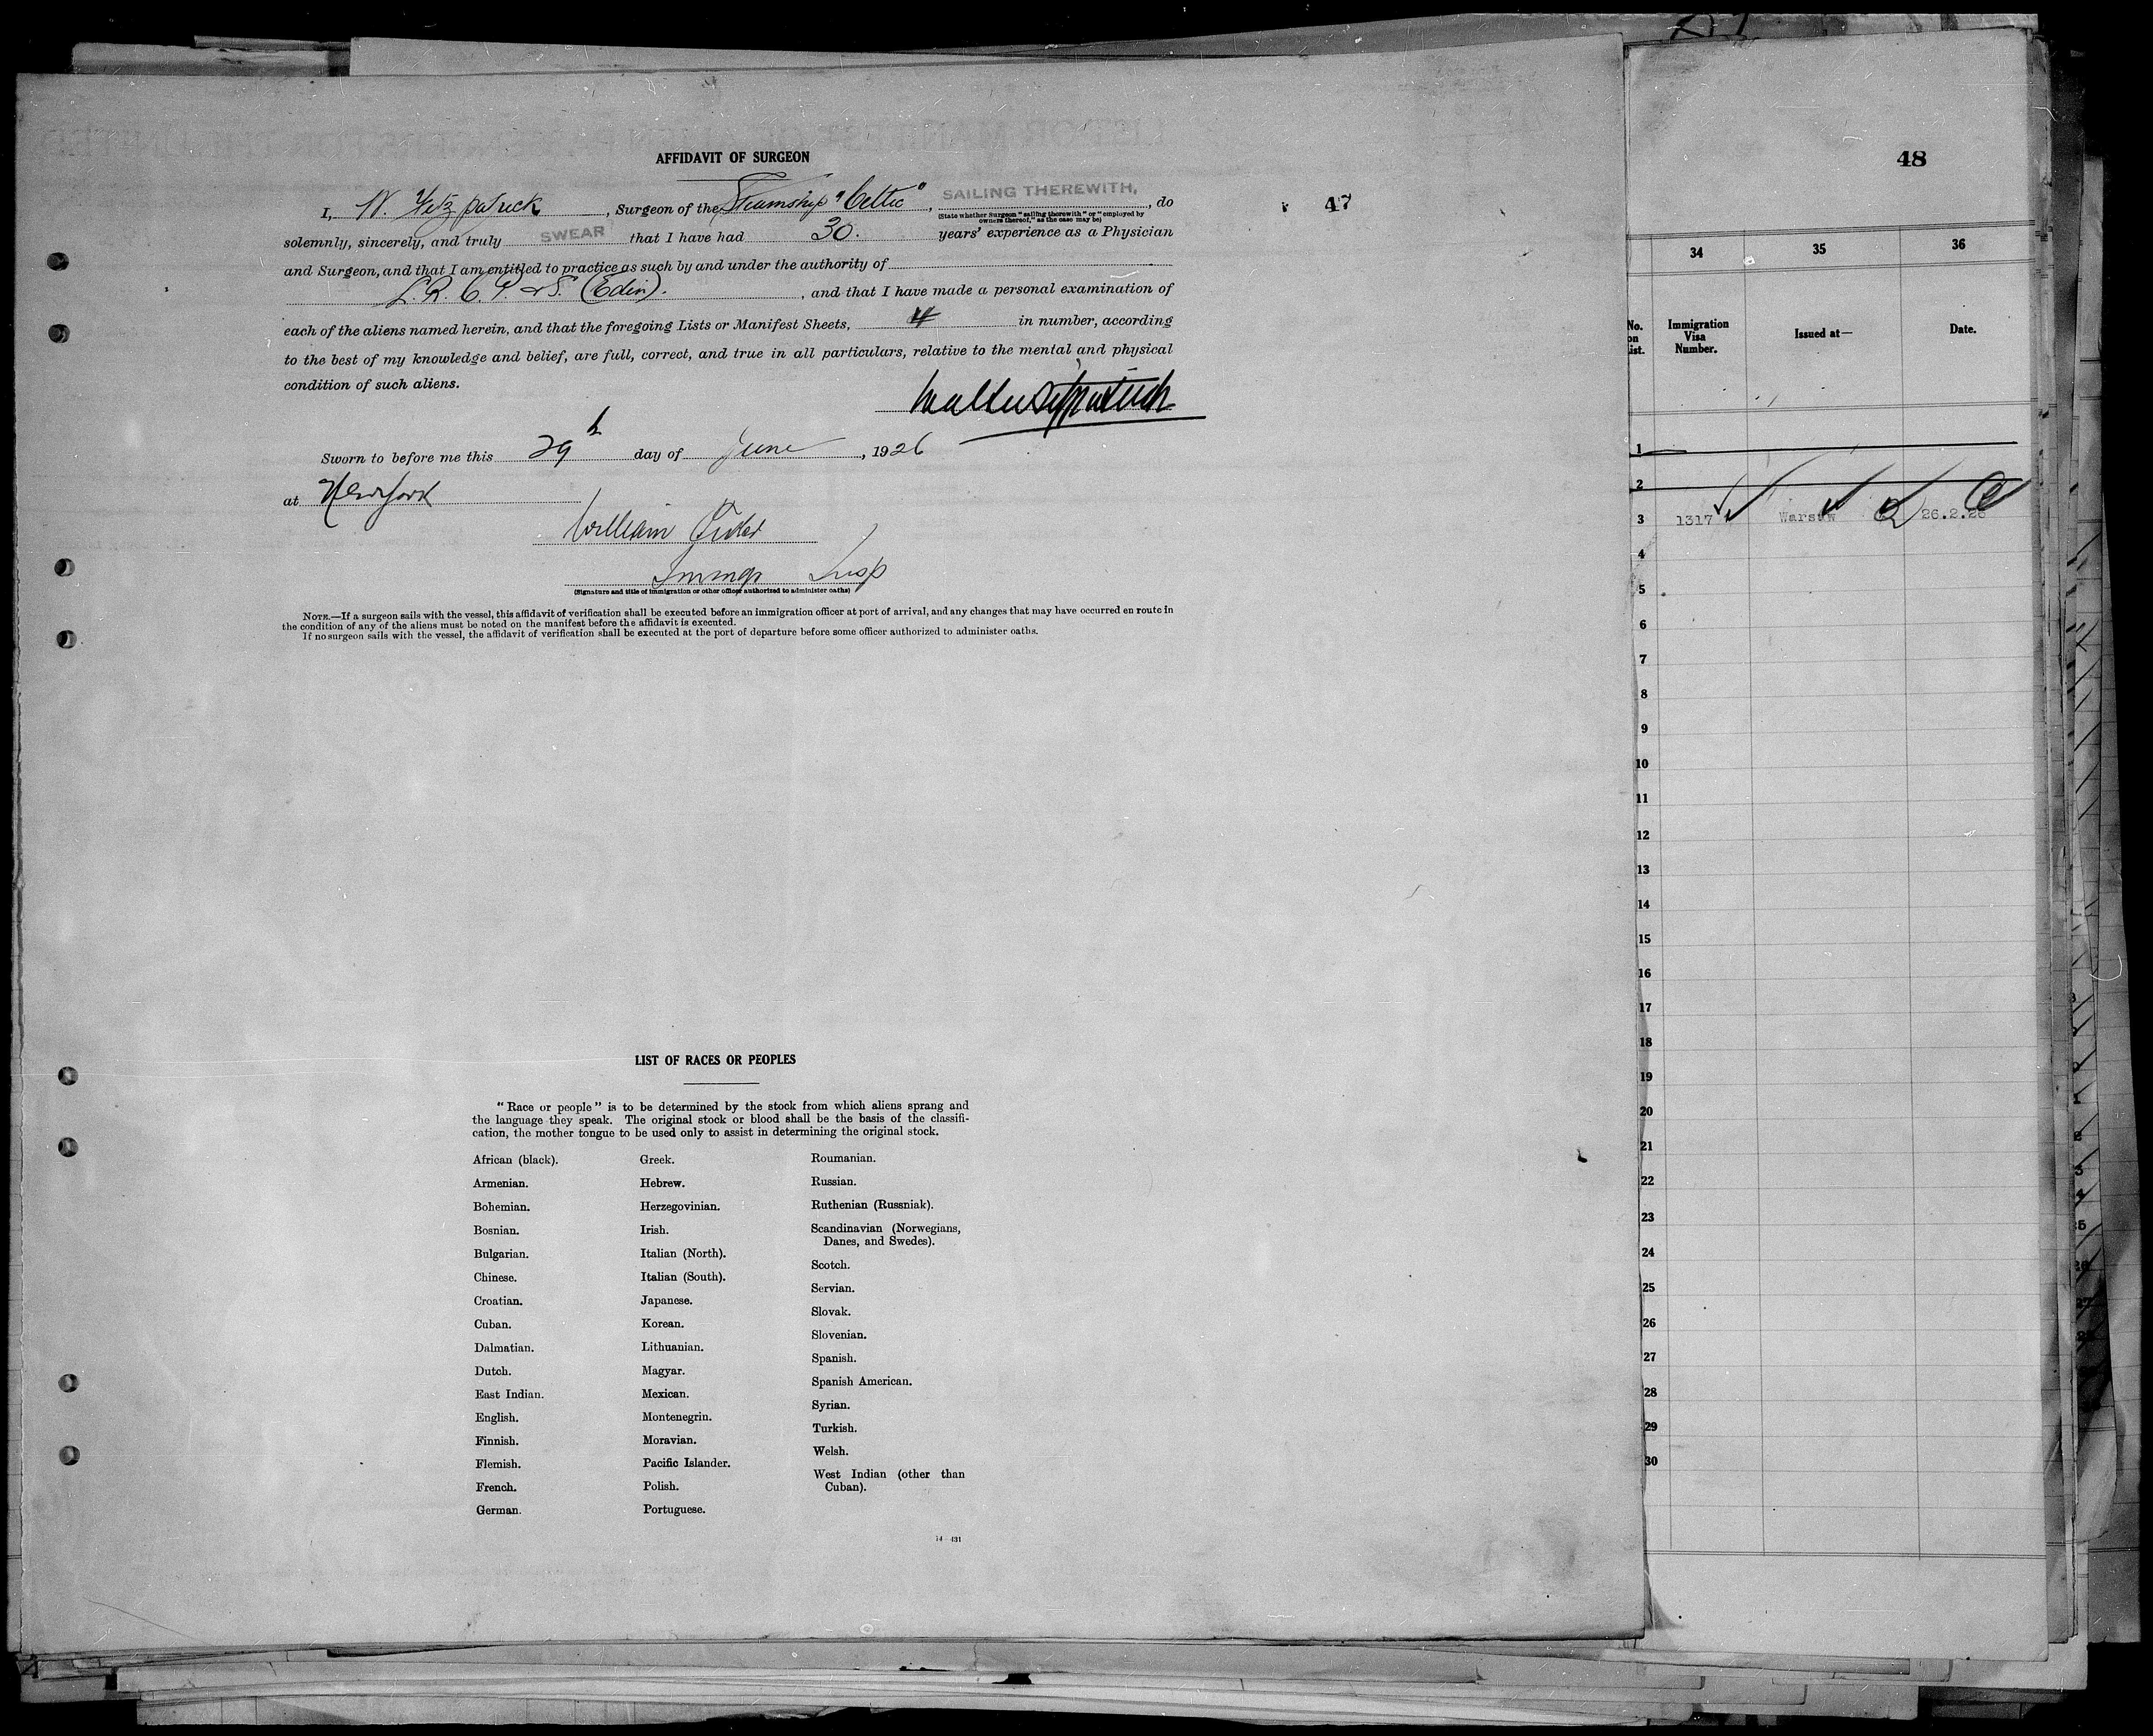 AFFIDAVIT OF SURGEON
I, W. Fitzpatrick, Surgeon of the Steamship "Celtic", SAILING THEREWITH, do
(State whether Surgeon "sailing therewith" or "employed by
owners thereof," as the case may be)
solemnly, sincerely, and truly SWEAR that I have had 30. years' experience as a Physician
and Surgeon, and that I am entitled to practice as such by and under the authority of
L.R.C.P. & S. (Edin)., and that I have made a personal examination of
each of the aliens named herein, and that the foregoing Lists or Manifest Sheets, 4 in number, according
to the best of my knowledge and belief, are full, correct, and true in all particulars, relative to the mental and physical
condition of such aliens.
Walter Fitzpatrick
Sworn to before me this 29th day of June, 1926
at New York
William
Immgr Insp
(Signature and title of immigration or other officer authorized to administer oaths)
NOTE.—If a surgeon sails with the vessel, this affidavit of verification shall be executed before an immigration officer at port of arrival, and any changes that may have occurred en route in
the condition of any of the aliens must be noted on the manifest before the affidavit is executed.
If no surgeon sails with the vessel, the affidavit of verification shall be executed at the port of departure before some officer authorized to administer oaths.
LIST OF RACES OR PEOPLES
"Race or people" is to be determined by the stock from which aliens sprang and
the language they speak. The original stock or blood shall be the basis of the classifi-
cation, the mother tongue to be used only to assist in determining the original stock.
African (black).
Armenian.
Bohemian.
Bosnian.
Bulgarian.
Chinese.
Croatian.
Cuban.
Dalmatian.
Dutch.
East Indian.
English.
Finnish.
Flemish.
French.
German.
Greek.
Hebrew.
Herzegovinian.
Irish.
Italian (North).
Italian (South).
Japanese.
Korean.
Lithuanian.
Magyar.
Mexican.
Montenegrin.
Moravian.
Pacific Islander.
Polish.
Portuguese.
Roumanian.
Russian.
Ruthenian (Russniak).
Scandinavian (Norwegians,
Danes, and Swedes).
Scotch.
Servian.
Slovak.
Slovenian.
Spanish.
Spanish American.
Syrian.
Turkish.
Welsh.
West Indian (other than
Cuban).
14—431
47
48
34 35 36
No.
on
List.
Immigration
Visa
Number.
Issued at—
Date.
1
2
3 1317 Warsaw 26.2.26
4
5
6
7
8
9
10
11
12
13
14
15
16
17
18
19
20
21
22
23
24
25
26
27
28
29
30